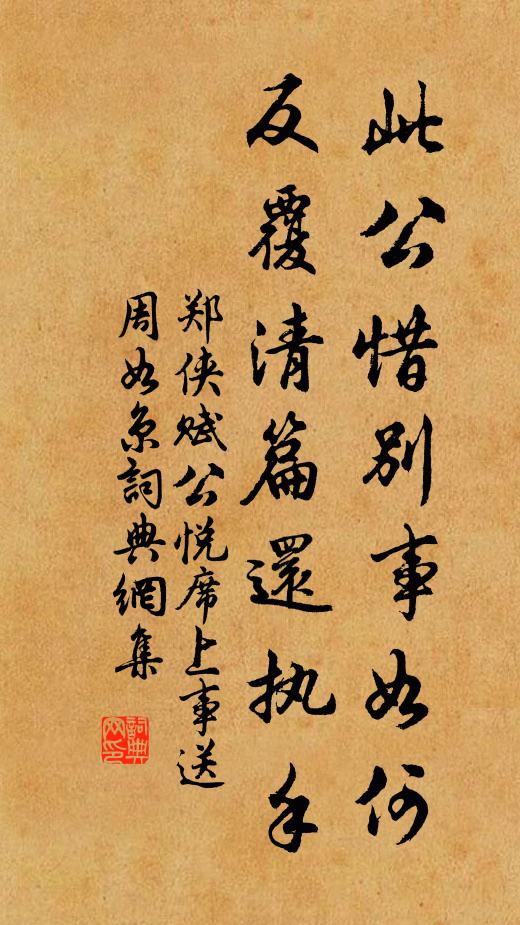 此公惜别事如何
反覆清篇還执手
郑侠赋公悦席上事送
周如京詞典網集
詞典
网印